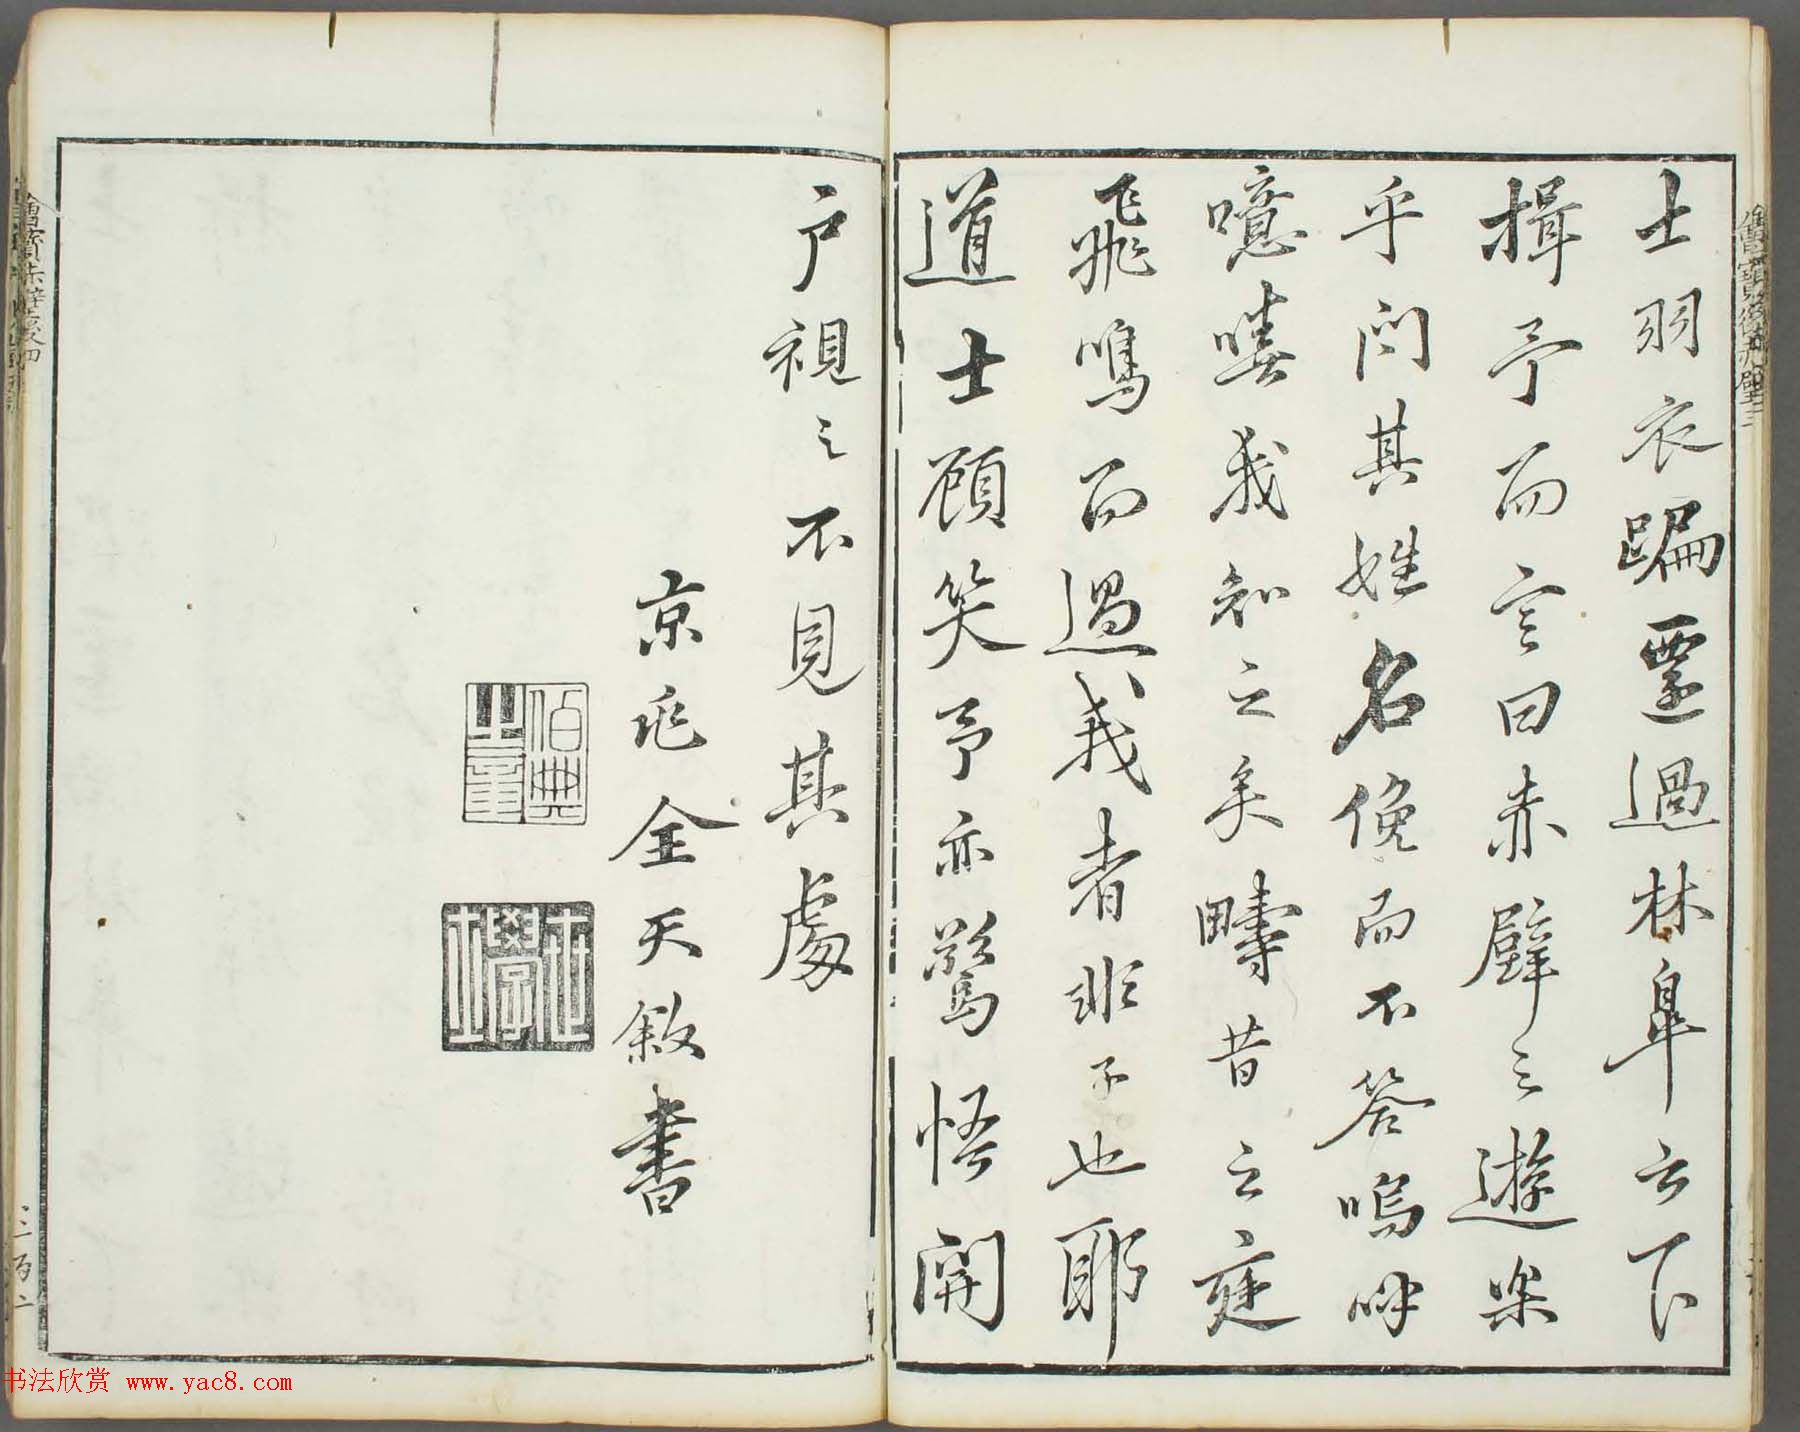 士羽衣蹁䙴過林皐云下
揖予而言曰赤壁之遊樂
乎问其姓名俛而不答嗚呼
噫嘻我知之矣疇昔之夜
飛鳴而過我者非子也耶
道士顧笑予亦驚悟開
户視之不見其處
京兆全天敘書
伯典
世學士
书法欣赏 www.yac8.com